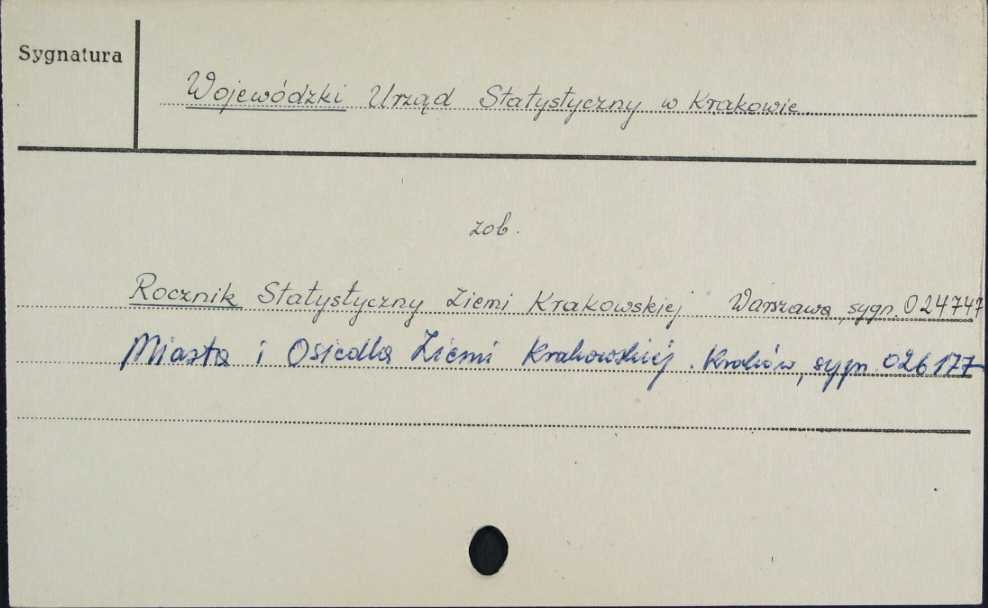 Sygnatura
Wojewódzki Urząd Statystyczny w Krakowie
zob.
Rocznik Statystyczny Ziemi Krakowskiej Warszawa, sygn. 024747
Miasta i Osiedla Ziemi Krakowskiej. Kraków, sygn. 026177